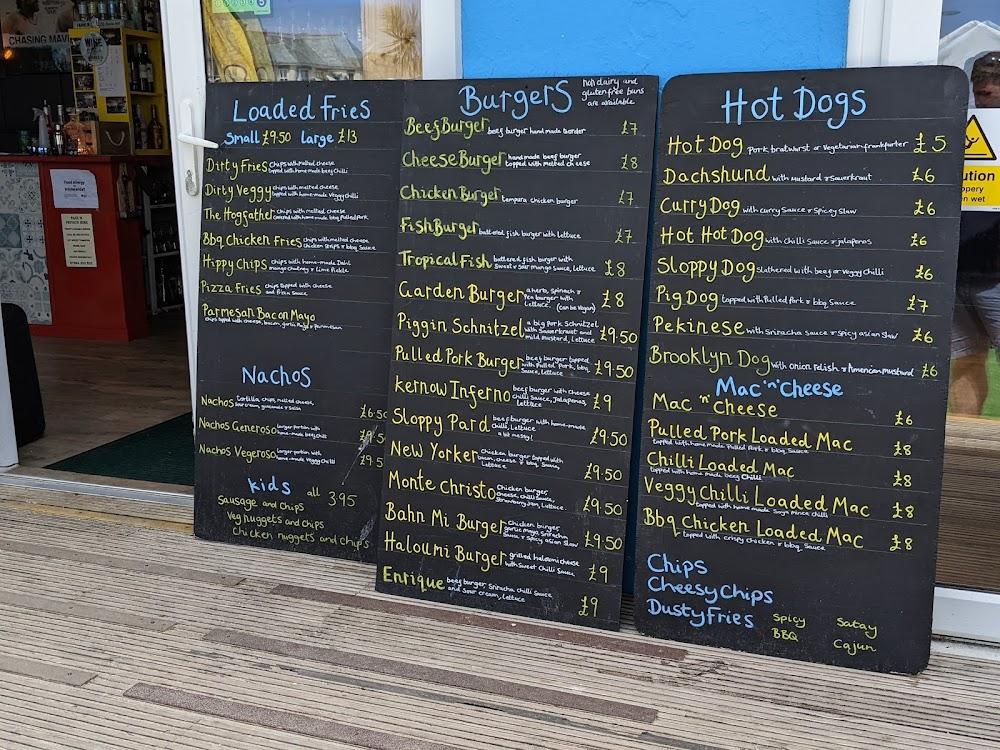 CHASING MAVE
WINE
Loaded Fries
Small £9.50 Large £13
Dirty Fries chips with melted cheese
topped with home-made beef Chilli
Dirty Veggy chips with melted cheese
topped with home-made Veggy Chilli
The Hogfather chips with melted cheese
covered with home made bbq Pulled pork
Bbq Chicken Fries chips with melted cheese
chicken strips & bbq Sauce
Hippy Chips chips with home-made Dahl
mango chutney & lime pickle
Pizza Fries chips topped with cheese
and Pizza Sauce
Parmesan Bacon Mayo
chips topped with cheese, bacon, garlic Mayo & parmesan
Nachos
Nachos tortilla chips, melted cheese,
Sour cream, guacamole & Salsa £6.50
Nachos Generoso larger portion with
home-made beef chilli £9.50
Nachos Vegeroso larger portion with
home-made Veggy Chilli £9.50
Kids all 3.95
Sausage and chips
Veg nuggets and chips
Chicken nuggets and chips
Burgers
non dairy and
gluten free buns
are available
Beef Burger beef burger hand made £7
Cheese Burger hand made beef burger
topped with melted cheese £8
Chicken Burger tempura chicken burger £7
Fish Burger battered fish burger with lettuce £7
Tropical Fish battered fish burger with
Sweet & Sour mango Sauce, lettuce £8
Garden Burger a herb, Spinach &
Pea burger with
Lettuce (can be Vegan) £8
Piggin Schnitzel a big pork Schnitzel
with Sauerkraut and
mild mustard, Lettuce £9.50
Pulled Pork Burger beef burger topped
with Pulled Pork, bbq
Sauce, Lettuce £9.50
Kernow Inferno beef burger with cheese
chilli Sauce, Jalapenos,
Lettuce £9
Sloppy Pard beef burger with home-made
chilli, Lettuce
a bit messy! £9.50
New Yorker Chicken burger topped with
bacon, cheese & bbq Sauce,
Lettuce £9.50
Monte Christo Chicken burger,
cheese, chilli Sauce,
Strawberry Jam, Lettuce £9.50
Bahn Mi Burger Chicken burger,
garlic Mayo, Sriracha
Sauce & Spicy asian Slaw £9.50
Haloumi Burger grilled haloumi cheese
with Sweet Chilli Sauce £9
Enrique beef burger, Sriracha chilli Sauce
and Sour cream, Lettuce £9
Hot Dogs
Hot Dog Pork bratwurst or Vegetarian frankfurter £5
Dachshund with Mustard & Sauerkraut £6
Curry Dog with curry Sauce & Spicy Slaw £6
Hot Hot Dog with Chilli Sauce & Jalapenos £6
Sloppy Dog Slathered with beef or Veggy Chilli £6
Pig Dog topped with Pulled Pork & bbq Sauce £7
Pekinese with Sriracha Sauce & Spicy asian Slaw £6
Brooklyn Dog with onion relish & American mustard £6
Mac 'n' Cheese
Mac 'n' Cheese £6
Pulled Pork Loaded Mac £8
topped with home made Pulled Pork & bbq Sauce
Chilli Loaded Mac £8
topped with home made beef Chilli
Veggy Chilli Loaded Mac £8
topped with home made Soya mince chilli
Bbq Chicken Loaded Mac £8
topped with crispy chicken & bbq Sauce
Chips
Cheesy Chips
Dusty Fries Spicy Satay
BBQ Cajun